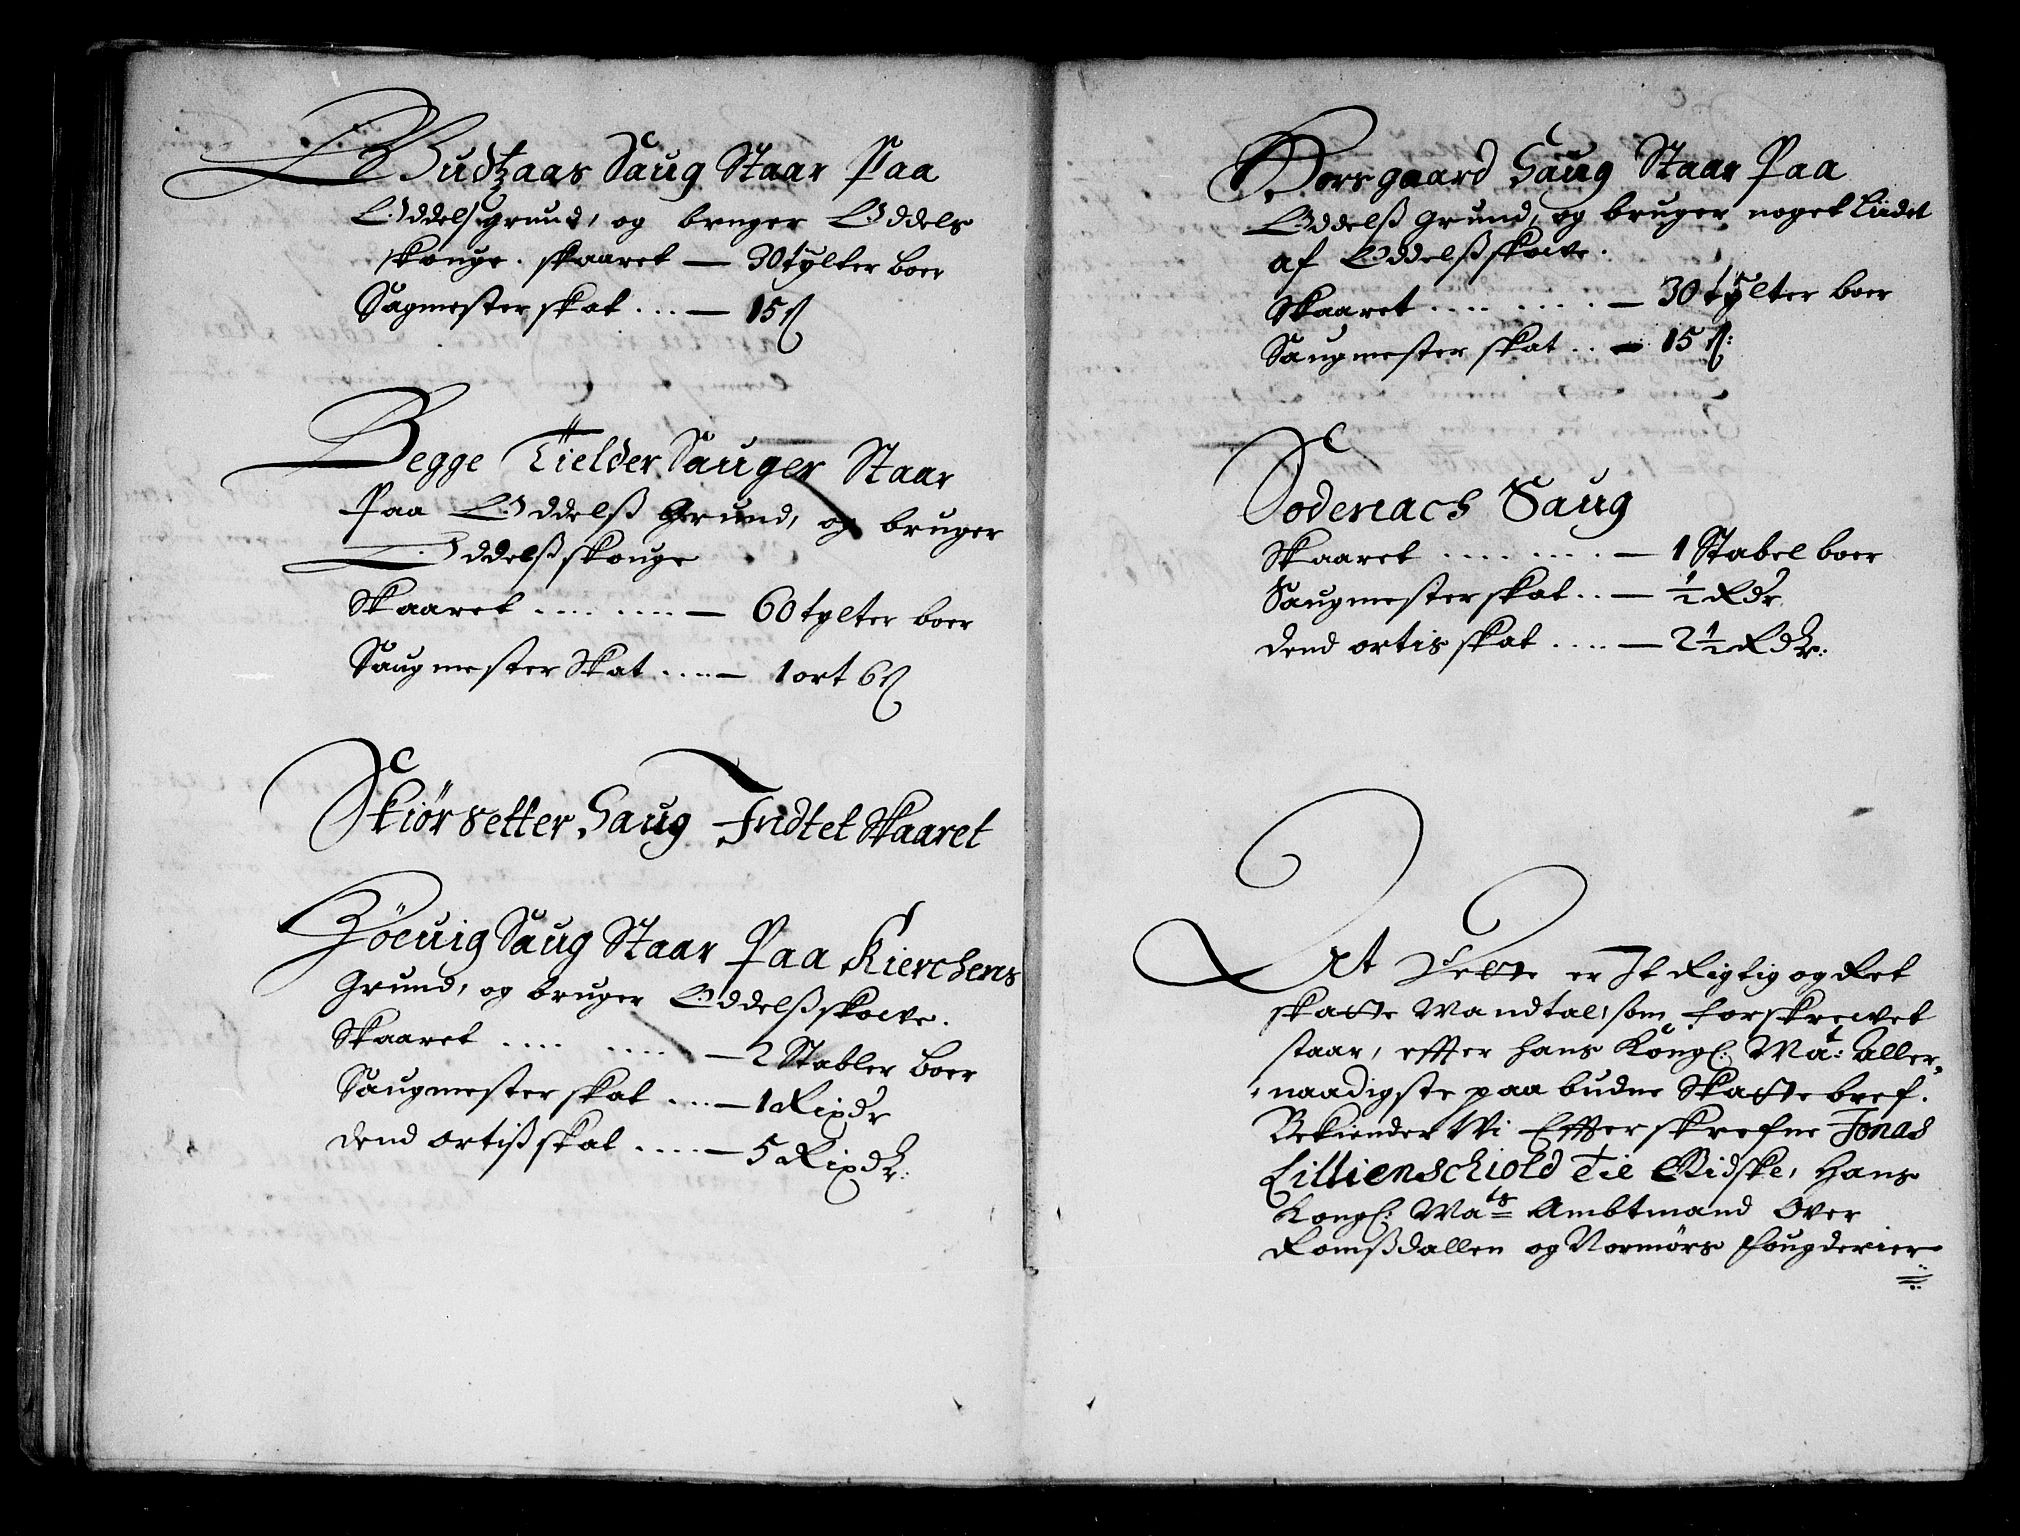 Budtzaas Saug Staar Paa
Oddelsgrund, og bruger Oddels
skouge. skaaret — 30 tylter boer
Sagmester skat ... — 15 ß
Begge Tielder Sauger Staar
Paa Oddelß Grund, og bruger
Oddelßskouge
Skaaret .... .... — 60 tylter boer
Saugmester Skat .... — 1 ort 6 ß
Skiørsetter Saug Indtet Skaaret
Höeuig Saug Staar Paa Kierchens
Grund, og bruger Oddelßskowe.
Skaaret .... .... — 2 Stabler boer
Saugmester skat ... — 1 Rixdr
dend ortiß skat .... — 5 Rixdlr:
Borsgaard Saug Staar Paa
Oddelß grund, og bruger noget Lidet
af Oddelßskowe.
Skaaret .... .... — 30 tylter boer
Saugmester skat .. — 15 ß:
Sodenach Saug
Skaaret .... .... — 1 Stabel boer
Saugmester skat .. — ½ Rdr
dend ortis skat .... — 2½ Rdlr:
At Dette er It Rigtig og Ret
skatte Mandtal, som forskrewet
staar, effter hans Kongl: Mat: Aller,
naadigste paa budne Skatte bref.
Bekiender Wi Effterskrefne Jonas
Lillienschiold Til Gidske, Hans
Kongl: Mats Ambtmand Over
Romßdallen og Normørs fougderier